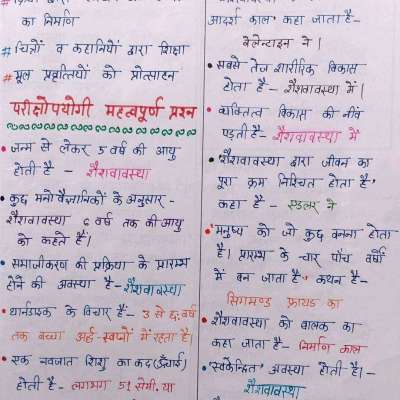 का निर्माण
# चित्रों व कहानियों द्वारा शिक्षा
# मूल प्रवृत्तियों को प्रोत्साहन
परीक्षोपयोगी महत्वपूर्ण प्रश्न
• जन्म से लेकर 5 वर्ष की आयु
होती है - शैशवावस्था
• कुछ मनोवैज्ञानिकों के अनुसार -
शैशवावस्था 6 वर्ष तक की आयु
को कहते हैं।
• समाजीकरण की प्रक्रिया के प्रारम्भ
होने की अवस्था है - शैशवावस्था
• थार्नडाइक के विचार हैं - 3 से 6 वर्ष
तक बच्चा अर्द्ध-स्वप्नों में रहता है।
• एक नवजात शिशु का कद (ऊँचाई)
होती है - लगभग 51 सेमी. या
आदर्श काल' कहा जाता है -
वेलेन्टाइन ने।
• सबसे तेज शारीरिक विकास
होता है - शैशवावस्था में।
• व्यक्तित्व विकास की नींव
पड़ती है - शैशवावस्था में
• 'शैशवावस्था द्वारा जीवन का
पूरा क्रम निश्चित होता है'
कहा है - एडलर ने
• 'मनुष्य को जो कुछ बनना होता
है। प्रारम्भ के चार पाँच वर्षों
में बन जाता है' कथन है -
सिगमण्ड फ्रायड का
• शैशवावस्था को बालक का
कहा जाता है - निर्माण काल
• 'स्वकेन्द्रित' अवस्था होती है। -
शैशवावस्था